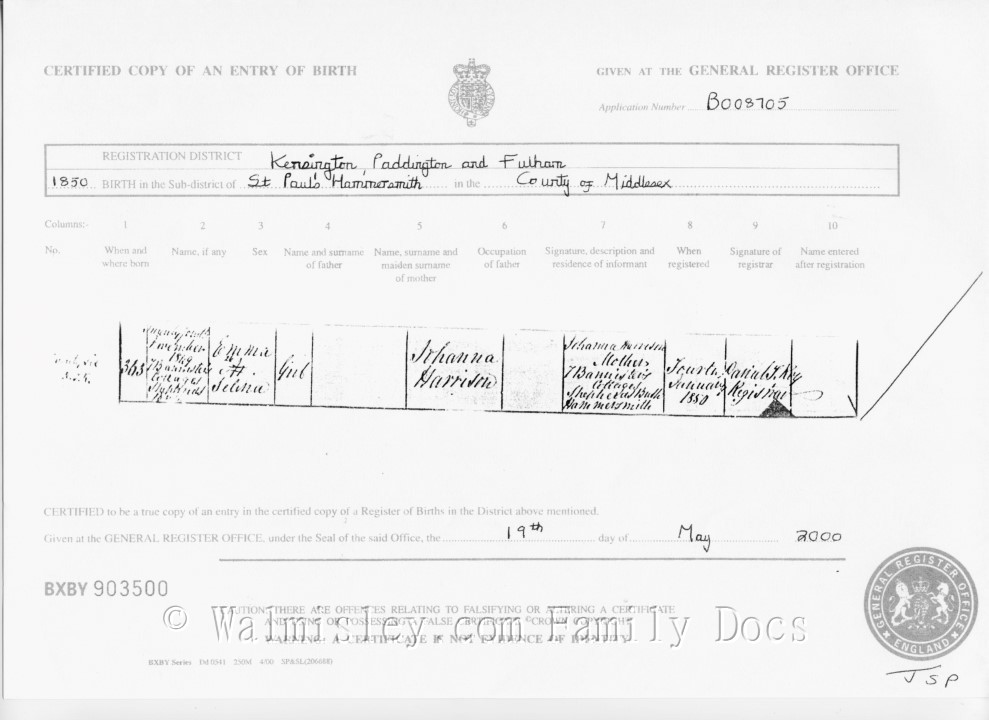 CERTIFIED COPY OF AN ENTRY OF BIRTH
GIVEN AT THE GENERAL REGISTER OFFICE
Application Number B008705
REGISTRATION DISTRICT Kensington, Paddington and Fulham
1850 BIRTH in the Sub-district of St Paul's Hammersmith in the County of Middlesex
Columns:- 1 2 3 4 5 6 7 8 9 10
No. When and where born Name, if any Sex Name and surname of father Name, surname and maiden surname of mother Occupation of father Signature, description and residence of informant When registered Signature of registrar Name entered after registration
363
1849
Emma
Selina
Girl
Johanna
Harrison
Johanna Harrison
Mother
7 Bannister's
Cottages
Shepherds Bush
Hammersmith
January
1850
Registrar
CERTIFIED to be a true copy of an entry in the certified copy of a Register of Births in the District above mentioned.
Given at the GENERAL REGISTER OFFICE, under the Seal of the said Office, the 19th day of May 2000
BXBY 903500
CAUTION: THERE ARE OFFENCES RELATING TO FALSIFYING OR ALTERING A CERTIFICATE
AND USING OR POSSESSING A FALSE CERTIFICATE © CROWN COPYRIGHT
WARNING: A CERTIFICATE IS NOT EVIDENCE OF IDENTITY
© Walmisley.com Family Docs
GENERAL REGISTER OFFICE
ENGLAND
JSP